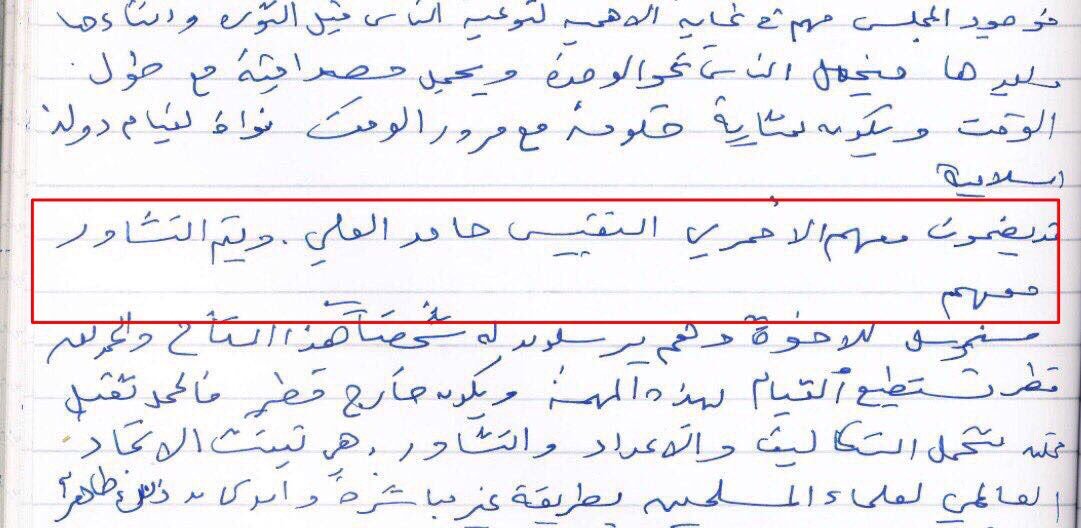 فوجود المجلس مهم في غاية الاهمية لتوعية الناس قبل الثورة واثناءها
وبعدها فيحمل الناس نحو الوحدة ويحمل مصداقية مع طول
الوقت ويكون بمثابة حكومة مع مرور الوقت نواة لقيام دولة
اسلامية
قد يضمون معهم الأحمري النفيسي حامد العلي. ويتم التشاور
معهم
سنرسل للاخوة وهم يرسلون له شخصاً هذا
قطر تستطيع القيام بهذه المهمة ويكون خارج قطر فالحمد تقبل
تتحمل التكاليف والاعداد والتشاور، هي تبنت الاتحاد
العالمي لعلماء المسلمين بطريقة غير مباشرة وان كان ذلك ظاهراً